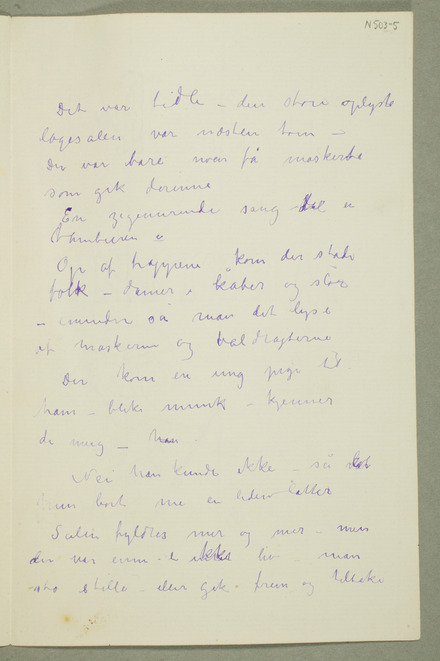 N 503-5
Det var tidli – den store oplyste
logesalen var næsten tom –
Der var bare noen få maskerte
som gik derinne
En zigeunerinde sang til en
tamburin
Op af trappene kom der stadi
folk – damer i kåber og slør
– under så man det lyse
af maskerne og baldragterne
Der kom en ung pige til
ham – blikk – kjenner
de mig – han
Nei han kunde ikke – så
hun bort me en liden latter
Salen fyldtes mer og mer – men
der var ennu ikke liv – man
sto stille eller gik frem og tilbake